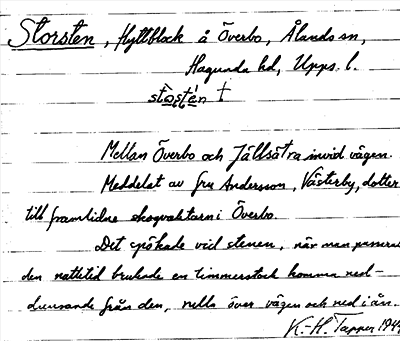 Storsten, flyttblock å Överbo, Ålands sn,
Hagunda hd, Upps. l.
stòstén †
Mellan Överbo och Fjällsätra invid vägen.
Meddelat av fru Andersson, Västerby, dotter
till framlidne skogvaktarn i Överbo.
Det spökade vid stenen, när man passerat
den nattetid brukade en timmerstock komma ned-
dunsande från den, rulla över vägen och ned i ån.
K.-H. Tapper 194